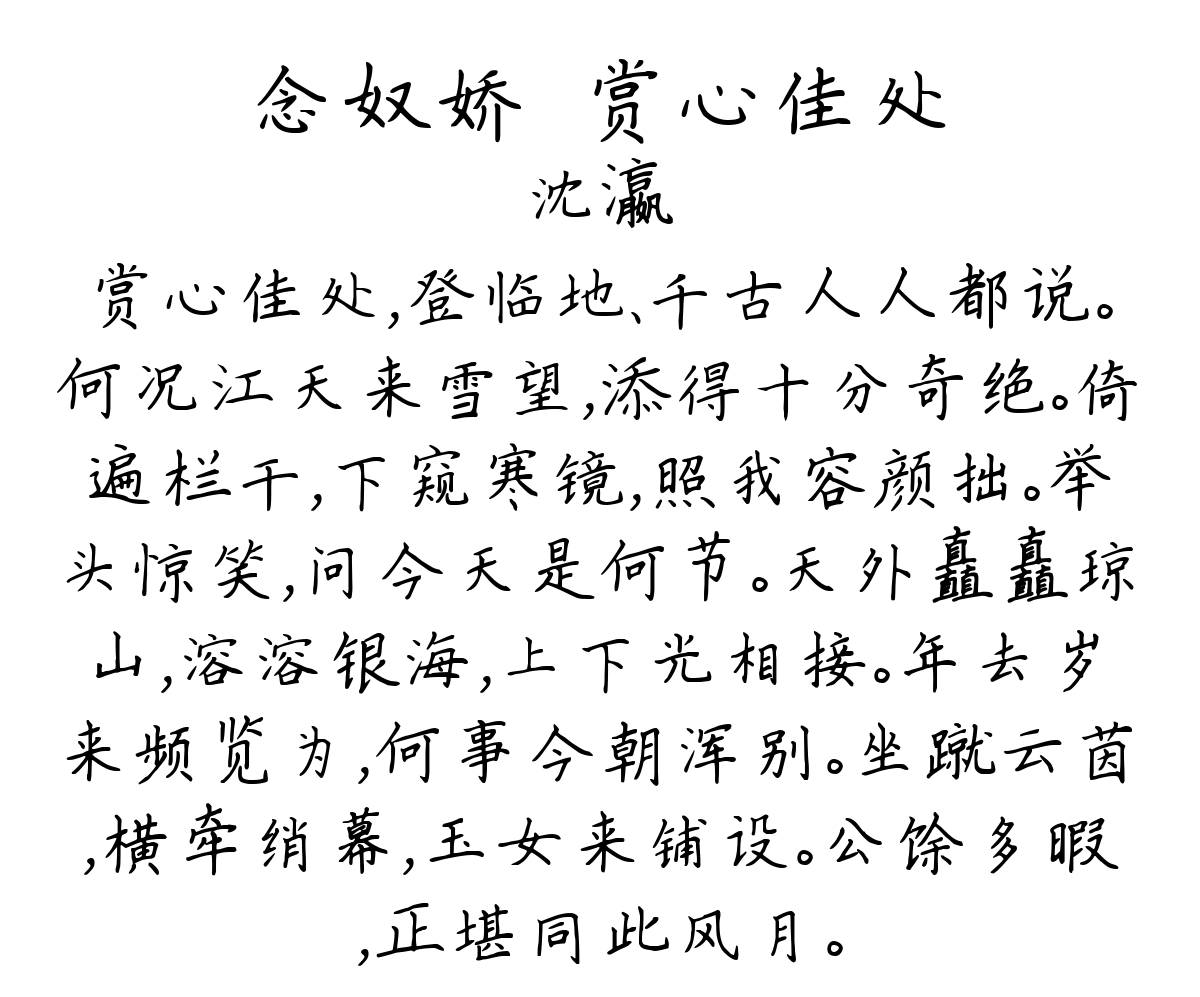 念奴娇 赏心佳处
沈瀛
赏心佳处,登临地、千古人人都说。
何况江天来雪望,添得十分奇绝。倚
遍栏干,下窥寒镜,照我容颜拙。举
头惊笑,问今天是何节。天外矗矗琼
山,溶溶银海,上下光相接。年去岁
来频览为,何事今朝浑别。坐蹴云茵
,横牵绡幕,玉女来铺设。公馀多暇
,正堪同此风月。